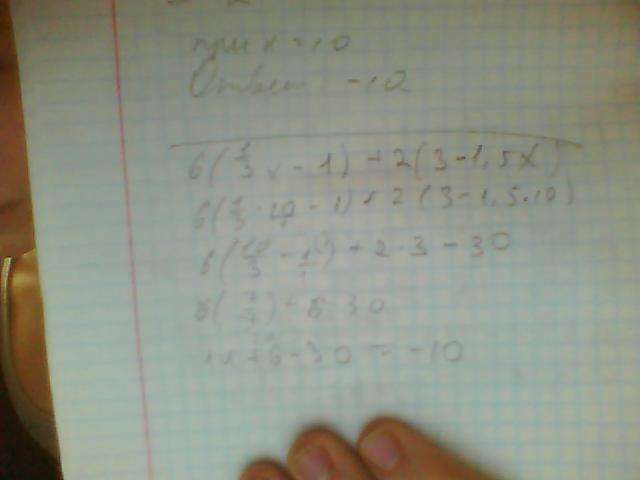 при x = 10
Ответ -10
6(1/3 x - 1) + 2(3 - 1,5x)
6(1/3 · 10 - 1) + 2(3 - 1,5·10)
6(10/3 - 1/1) + 2·3 - 30
+ 6 - 30 = -10